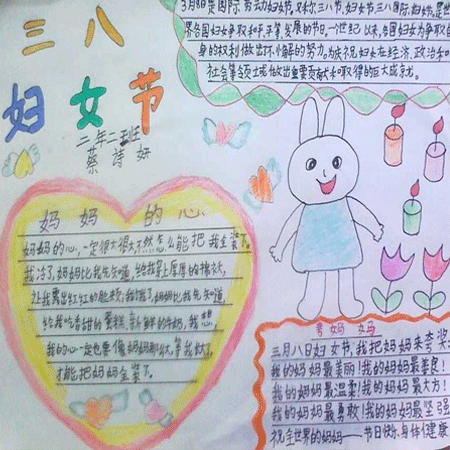 三八
妇女节
二年二班
蔡诗妍
3月8日是国际劳动妇女节,又称三八节,妇女节三八国际妇女节.是世
界各国妇女争取和平平等,发展的节日,一世纪以来,各国妇女为争取自
身的权利做出不小解的努力,为庆祝妇女在经济、政治和
社会等领域做出重要贡献和取得的巨大成就。
妈妈的心
妈妈的心,一定很大很大,不然怎么能把我全装下。
我冷了,妈妈比我先知道,给我穿上厚厚的棉衣,
让我露出红红的脸颊,我饿了,妈妈比我先知道,
给我吃香甜的蛋糕,新鲜的牛奶,我想,
我的心一定也要像妈妈那么大,等我大了,
才能把妈妈全装下。
夸妈妈
三月八日妇女节,我把妈妈来夸奖
我的妈妈最美丽!我的妈妈最善良!
我的妈妈最温柔!我的妈妈最大方!
我的妈妈最勇敢!我的妈妈最坚强
祝全世界的妈妈——节日快乐,身体健康